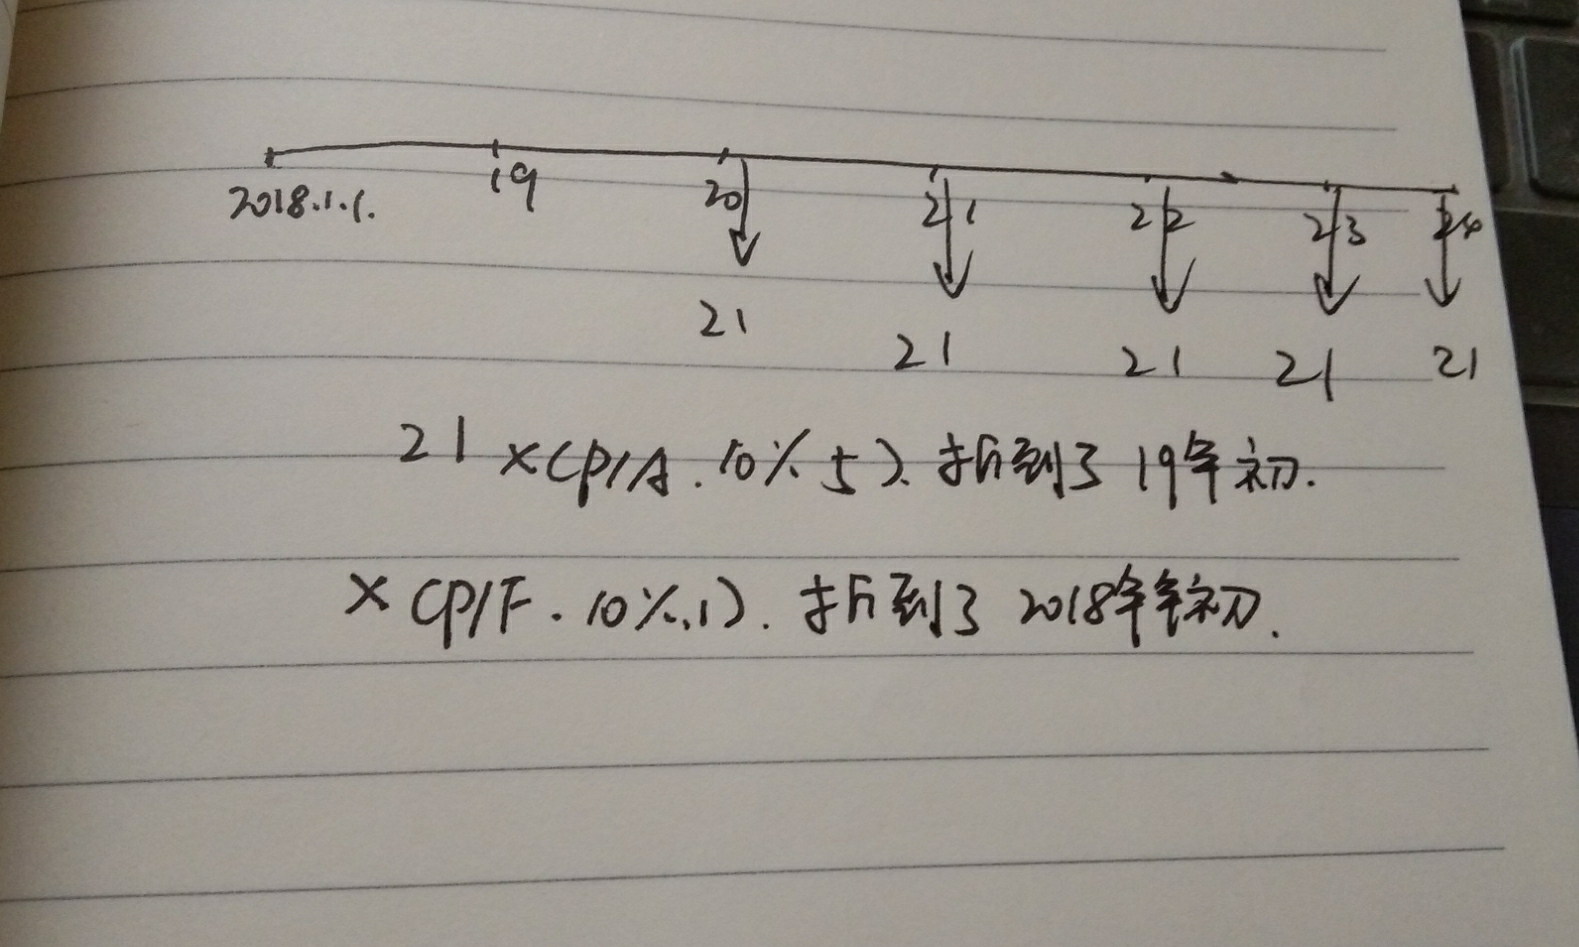 2018.1.1. 19 20 21 22 23 24
21 21 21 21 21
21 ×(P/A.10% 5). 折到了 19年初.
×(P/F.10%.1). 折到了 2018年年初.